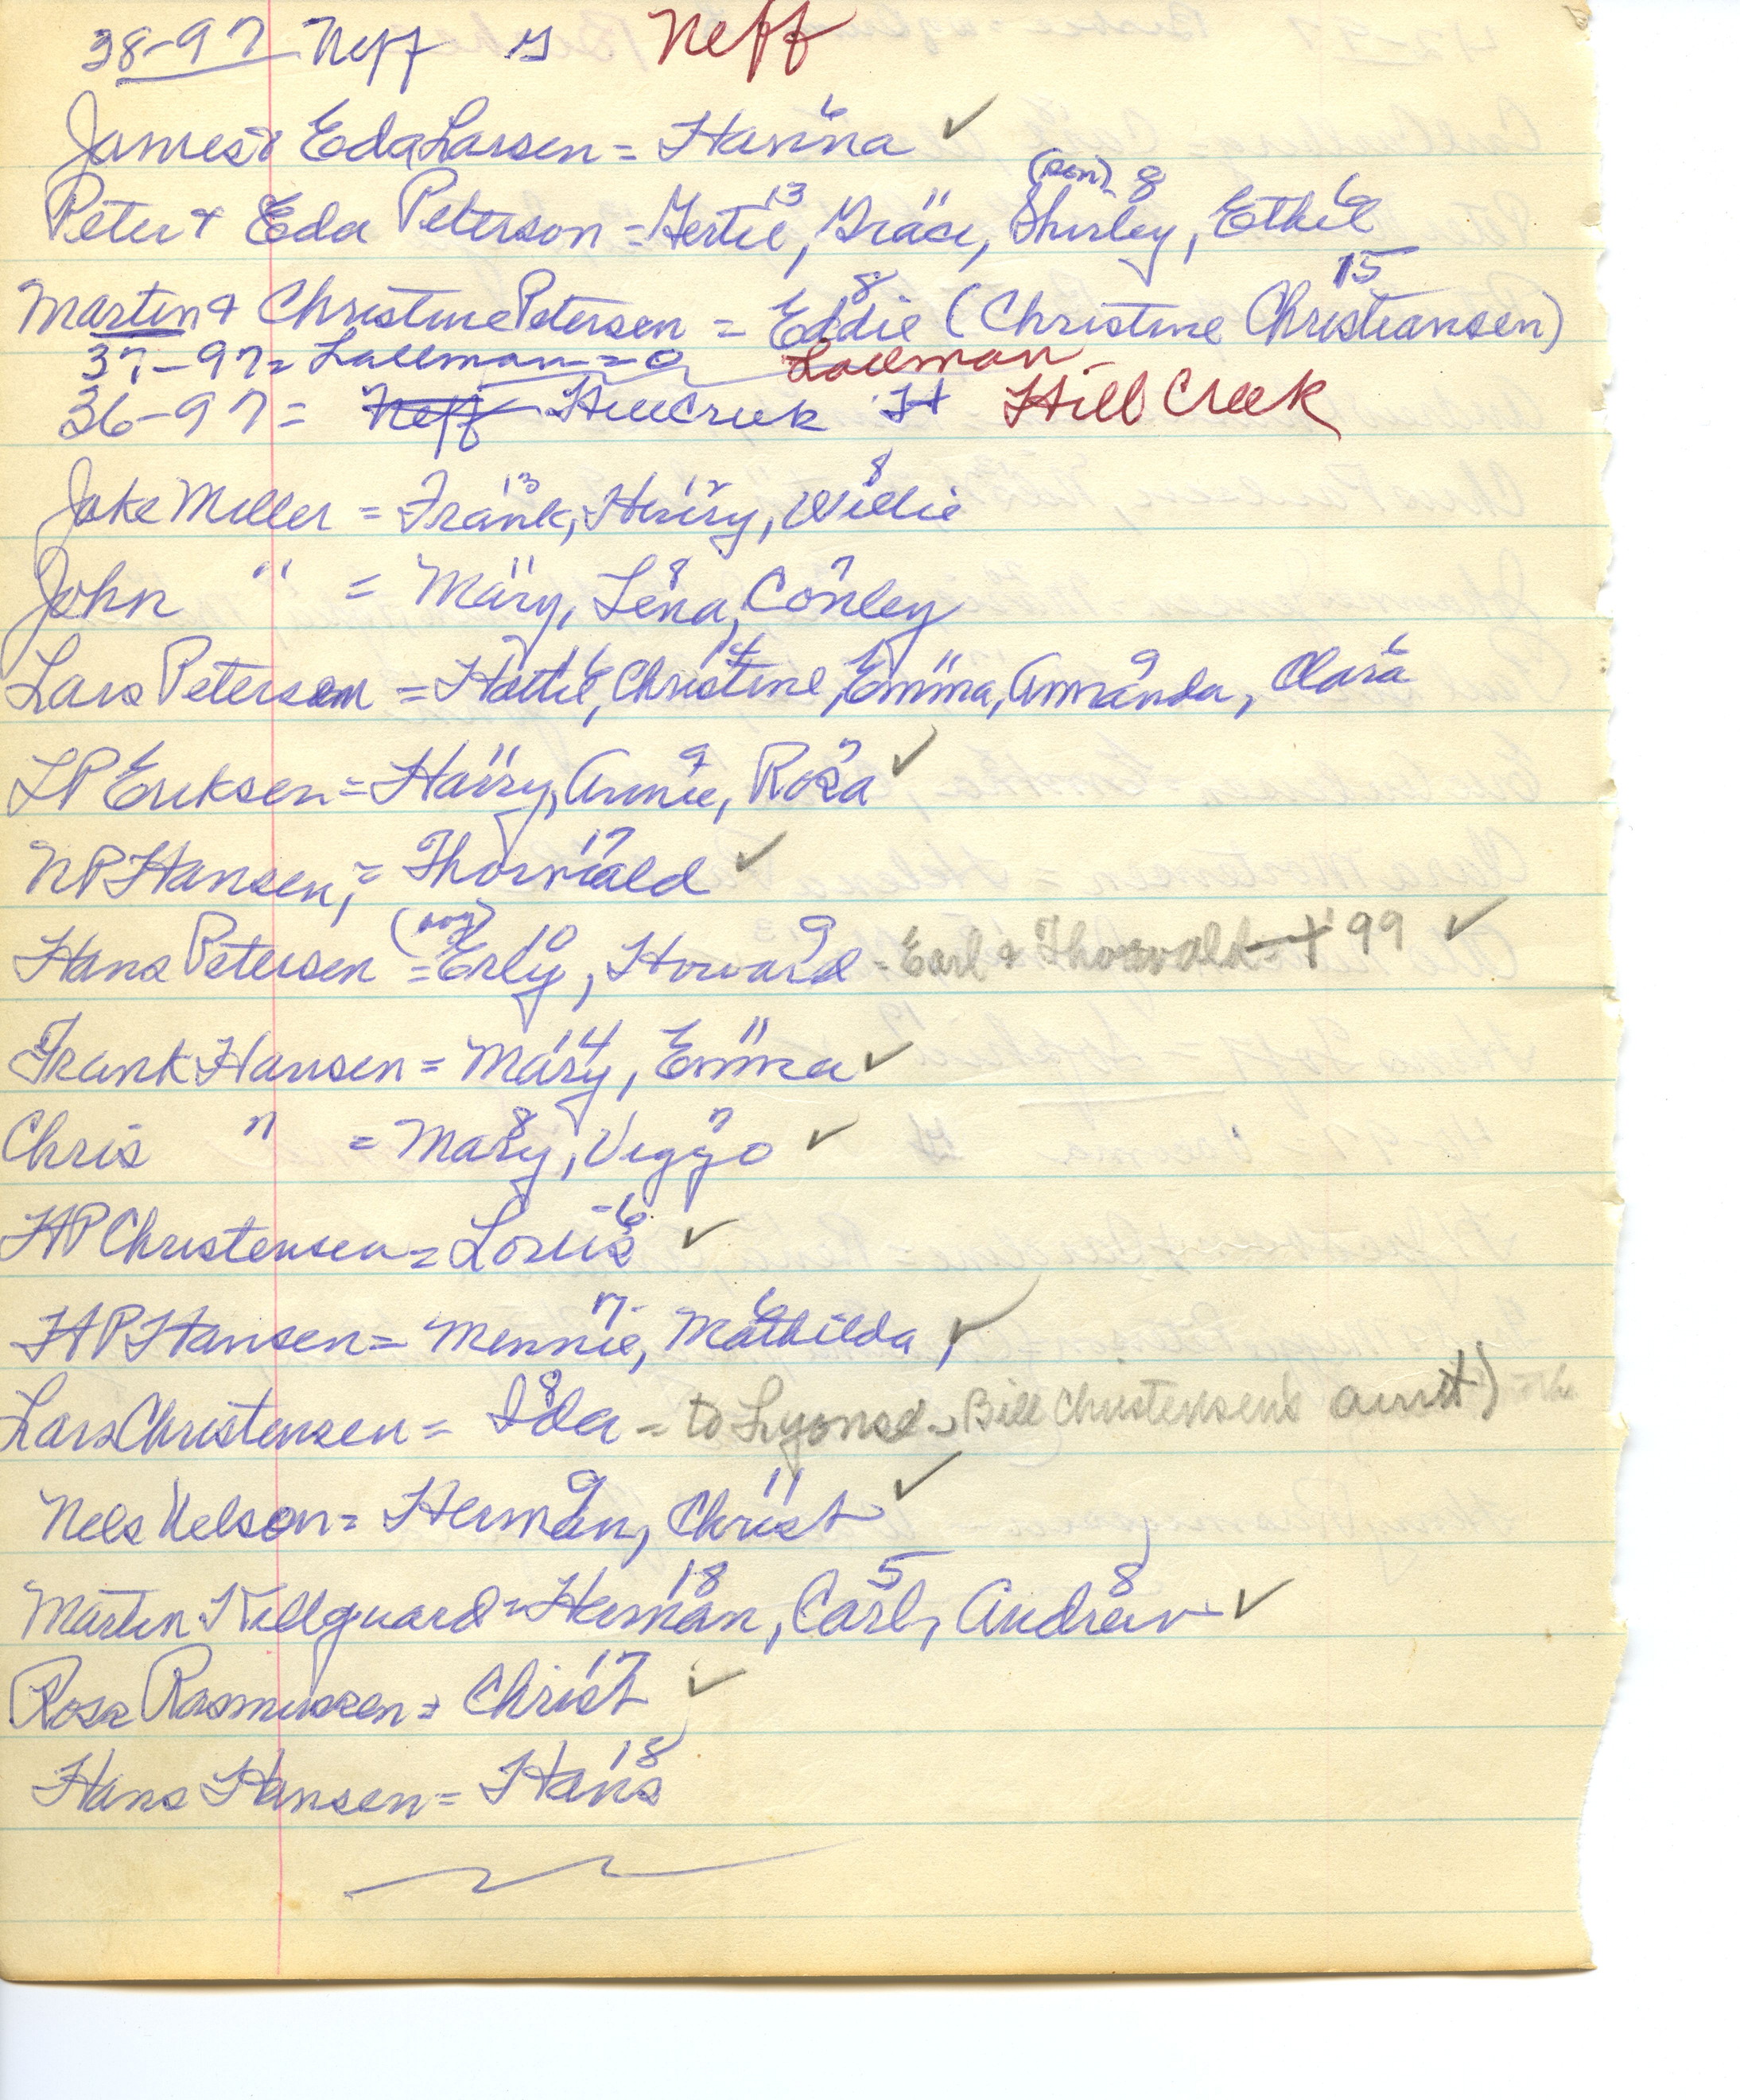 38-97 Neff G Neff
6
James & Eda Larsen = Hanna ✓
13 11 (son) 8 6
Peter + Eda Peterson = Gertie, Grace, Shirley, Ethel
8 15
Martin + Christine Petersen = Eddie (Christine Christiansen)
37-97= Lallman = 0 Lallman
36-97= Neff Hill Creek H Hill Creek
13 12 8
Jake Miller = Frank, Henry, Willie
11 8 7
John " = Mary, Lena, Conley
14 11 9 6
Lars Petersen = Hattie, Christine, Emma, Amanda, Clara
11 9 7
LP Eriksen = Harry, Annie, Rosa ✓
17
NP Hansen, = Thorvald ✓
(boy) 10 9
Hans Petersen = Erly, Howard - Earl & Thorvald - + '99 ✓
14 11
Frank Hansen = Mary, Emma ✓
8 7
Chris " = Mary, Viggo ✓
6
HP Christensen = Louis ✓
17 6
HP Hansen = Mennie, Mathilda, ✓
8
Lars Christensen = Ida = to Lyons Bill Christensen's aunt)
9 11
Nels Nelson = Herman, Christ ✓
18 5 8
Martin Killguard = Herman, Carl, Andrew ✓
17
Rosa Rasmussen = Christ ✓
18
Hans Hansen = Hans